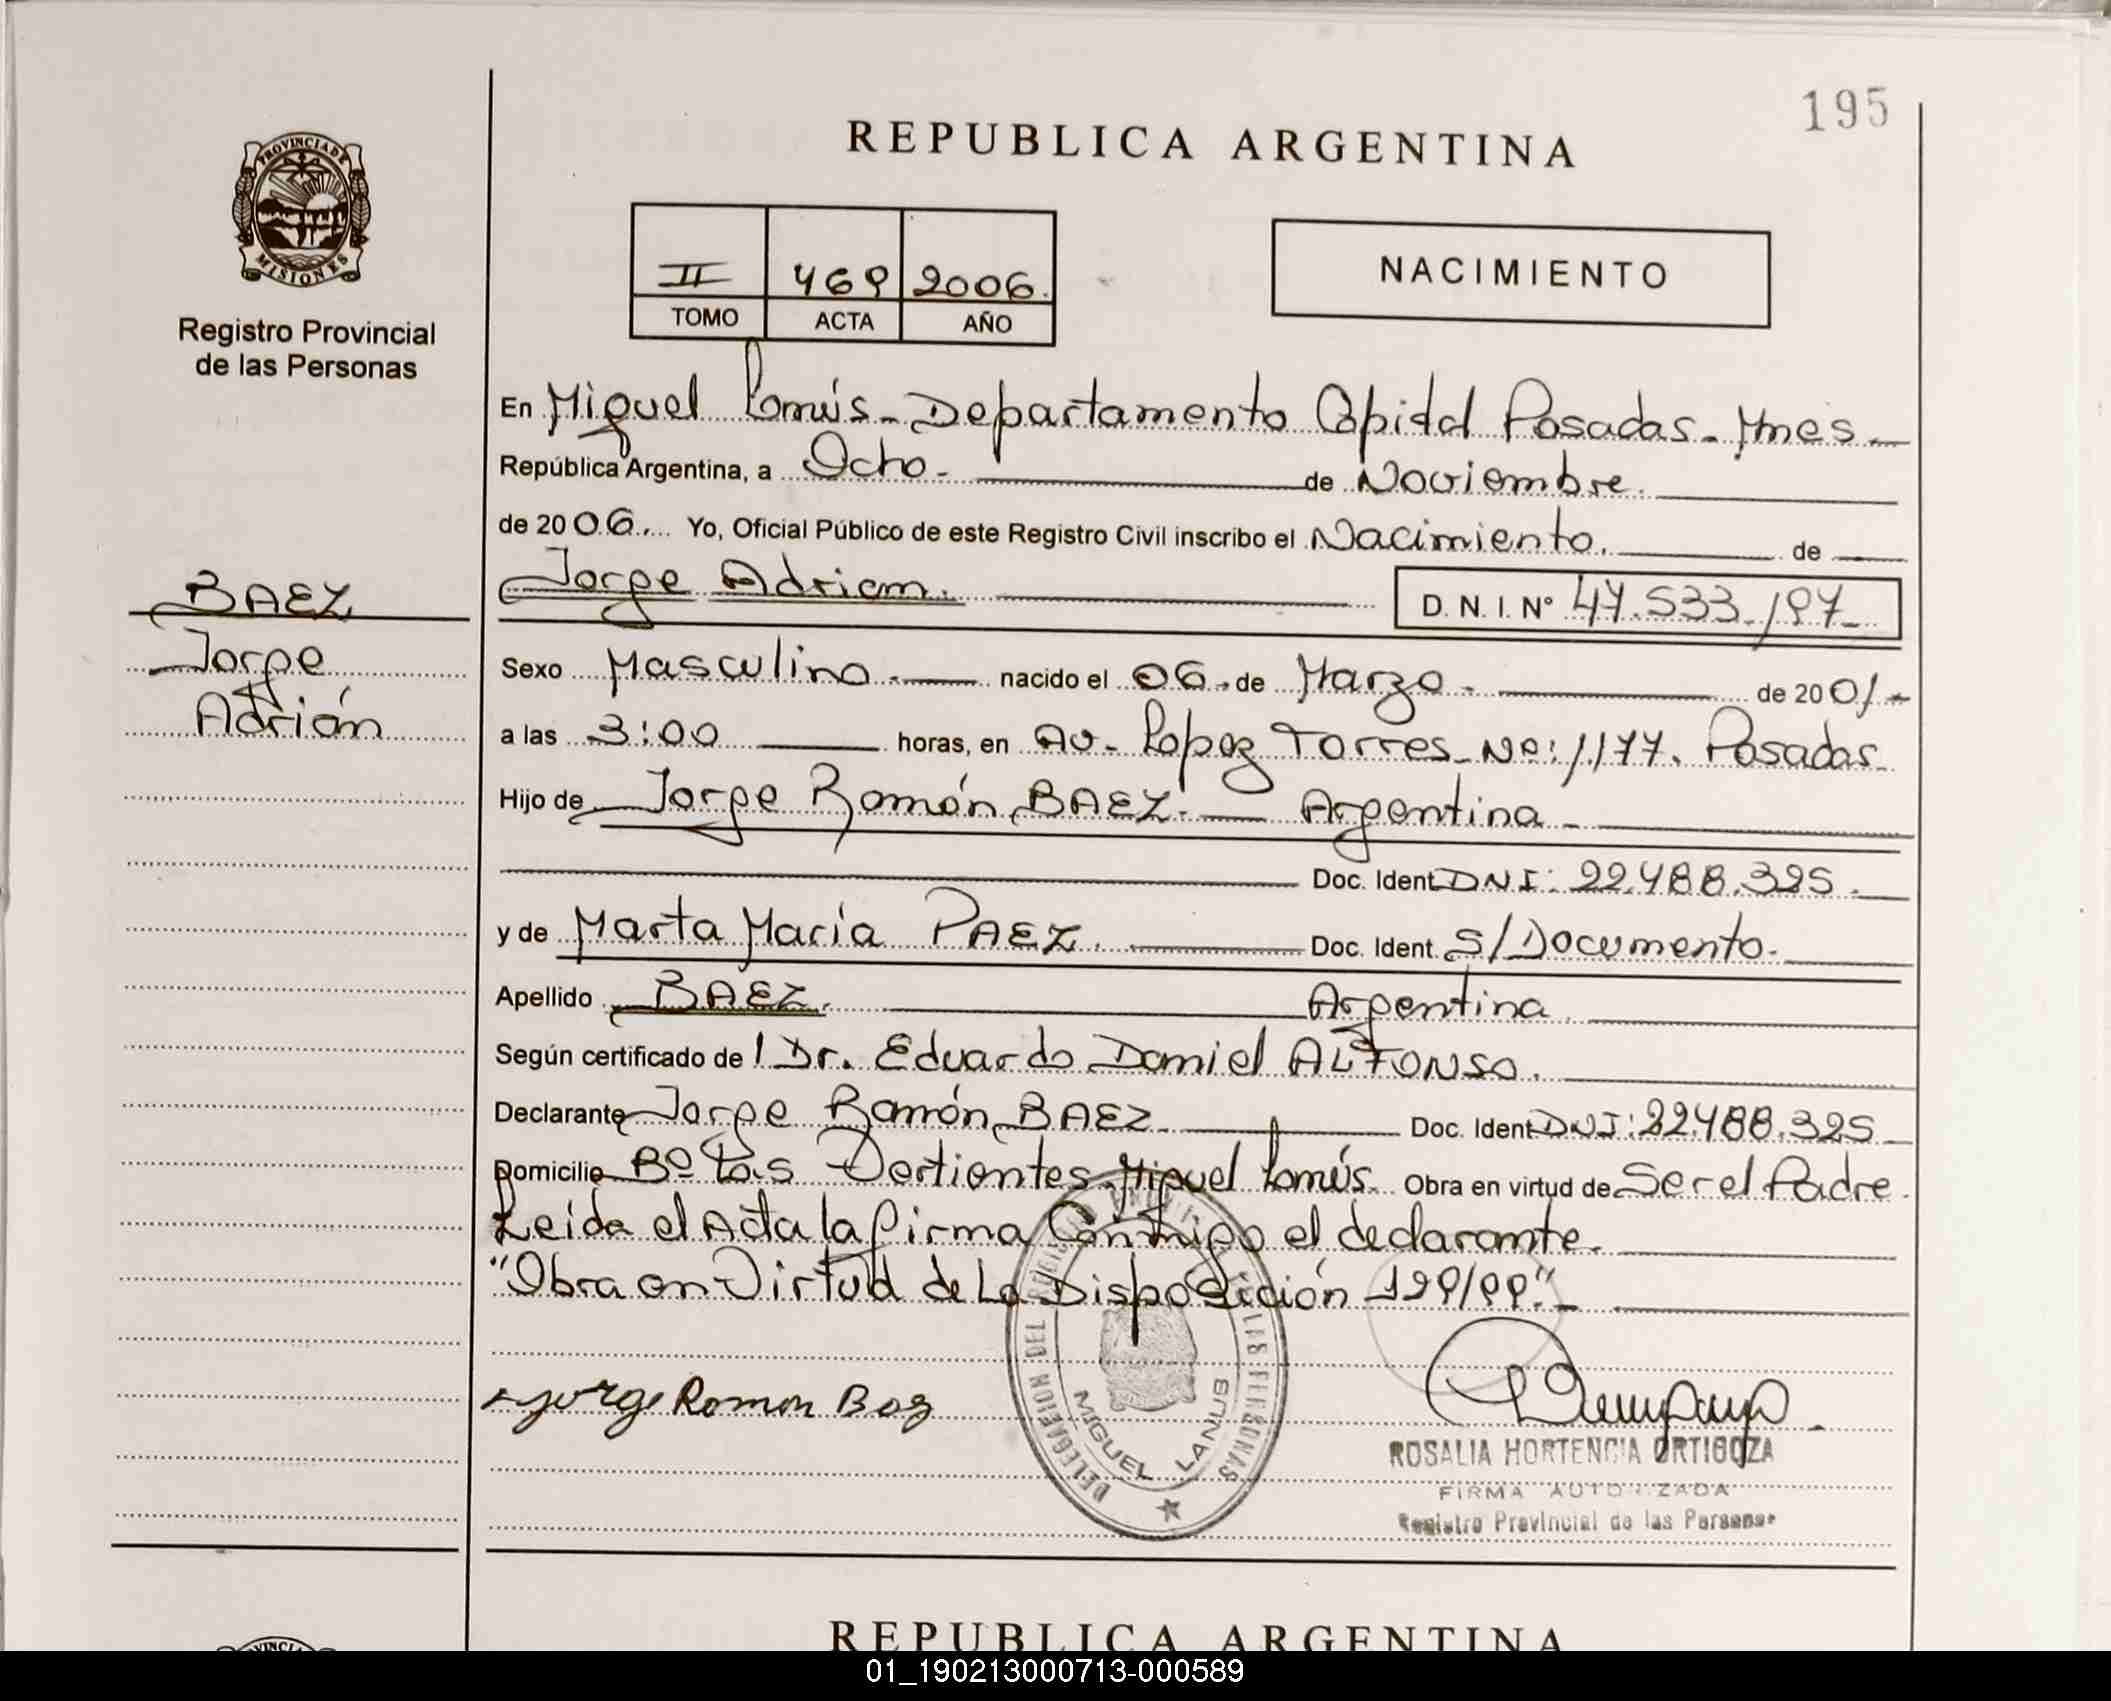 195
REPUBLICA ARGENTINA
PROVINCIA DE
MISIONES
Registro Provincial
de las Personas
II 469 2006.
TOMO ACTA AÑO
NACIMIENTO
En Miguel Lanús - Departamento Capital Posadas - Mnes -
República Argentina, a Ocho - de Noviembre.
de 2006. Yo, Oficial Público de este Registro Civil inscribo el Nacimiento. de
Jorge Adrian. D. N. I. N° 47.533.197-
BAEZ
Jorge
Adrián
Sexo Masculino - nacido el 06. de Marzo - de 2001-
a las 3:00 horas, en Av. Lopez Torres - No: 1.177. Posadas -
Hijo de Jorge Ramón BAEZ - Argentina -
Doc. Ident. DNI: 22.488.325.
y de Marta María PAEZ. Doc. Ident. S/Documento.
Apellido BAEZ. Argentina.
Según certificado de Dr. Eduardo Daniel ALFONSO.
Declarante Jorge Ramón BAEZ - Doc. Ident. DNI: 22.488.325 -
Domicilio Bº Las Vertientes - Miguel Lanús. Obra en virtud de Ser el Padre.
Leida el Acta la firma Conmigo el declarante.
"Obra en Virtud de La Disposición 129/99" -
Jorge Ramon Baez
DELEGACION DEL REGISTRO PROVINCIAL DE LAS PERSONAS
MIGUEL LANUS
ROSALIA HORTENCIA ORTIGOZA
FIRMA AUTORIZADA
Registro Provincial de las Personas
REPUBLICA ARGENTINA
01_190213000713-000589